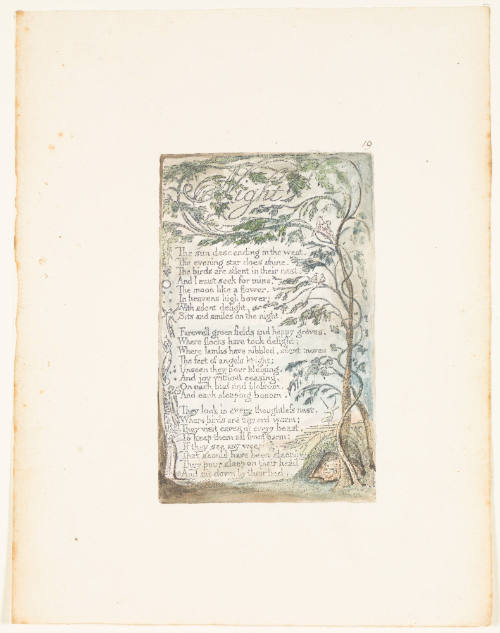 19
Night
The sun descending in the west.
The evening star does shine.
The birds are silent in their nest.
And I must seek for mine.
The moon like a flower,
In heavens high bower;
With silent delight,
Sits and smiles on the night.
Farewell green fields and happy groves,
Where flocks have took delight;
Where lambs have nibbled, silent moves
The feet of angels bright;
Unseen they pour blessing,
And joy without ceasing,
On each bud and blossom,
And each sleeping bosom.
They look in every thoughtless nest,
Where birds are coverd warm;
They visit caves of every beast,
To keep them all from harm;
If they see any weeping,
That should have been sleeping
They pour sleep on their head
And sit down by their bed.